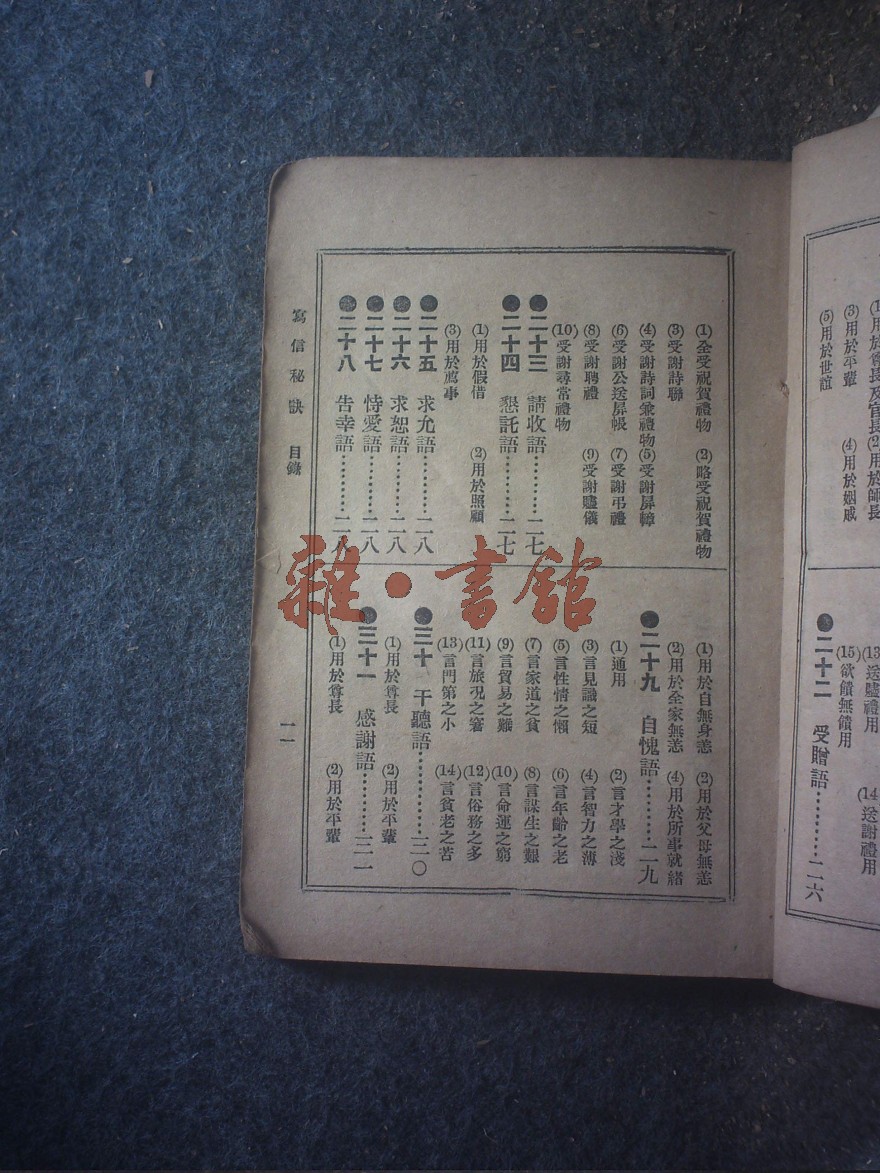 (1)用於尊長及官長 (2)用於師長
(3)用於平輩 (4)用於姻戚
(5)用於世誼
(13)送贐禮用 (14)送謝禮用
(15)欲饋無饋用
●二十二 受贈語………二六
(1)全受祝賀禮物 (2)略受祝賀禮物
(3)受謝詩聯
(4)受謝詩詞兼禮物 (5)受謝屏幛
(6)受謝公送屏帳 (7)受謝弔禮
(8)受謝聘禮 (9)受謝贐儀
(10)受謝尋常禮物
●二十三 請收語………二七
●二十四 懇託語………二七
(1)用於假借 (2)用於照顧
(3)用於薦事
●二十五 求允語………二八
●二十六 求恕語………二八
●二十七 恃愛語………二八
●二十八 告幸語………二八
(1)用於自無身恙 (2)用於父母無恙
(2)用於全家無恙 (4)用於所事就緒
●二十九 自愧語………二九
(1)通用 (2)言才學之淺
(3)言見識之短 (4)言智力之薄
(5)言性情之懶 (6)言年齡之老
(7)言家道之貧 (8)言謀生之艱
(9)言貿易之難 (10)言命運之窮
(11)言旅況之窘 (12)言俗務之多
(13)言門第之小 (14)言貧老之苦
●三十 干聽語………三〇
(1)用於尊長 (2)用於平輩
●三十一 感謝語………三一
(1)用於尊長 (2)用於平輩
寫信秘訣 目錄
雜·書館